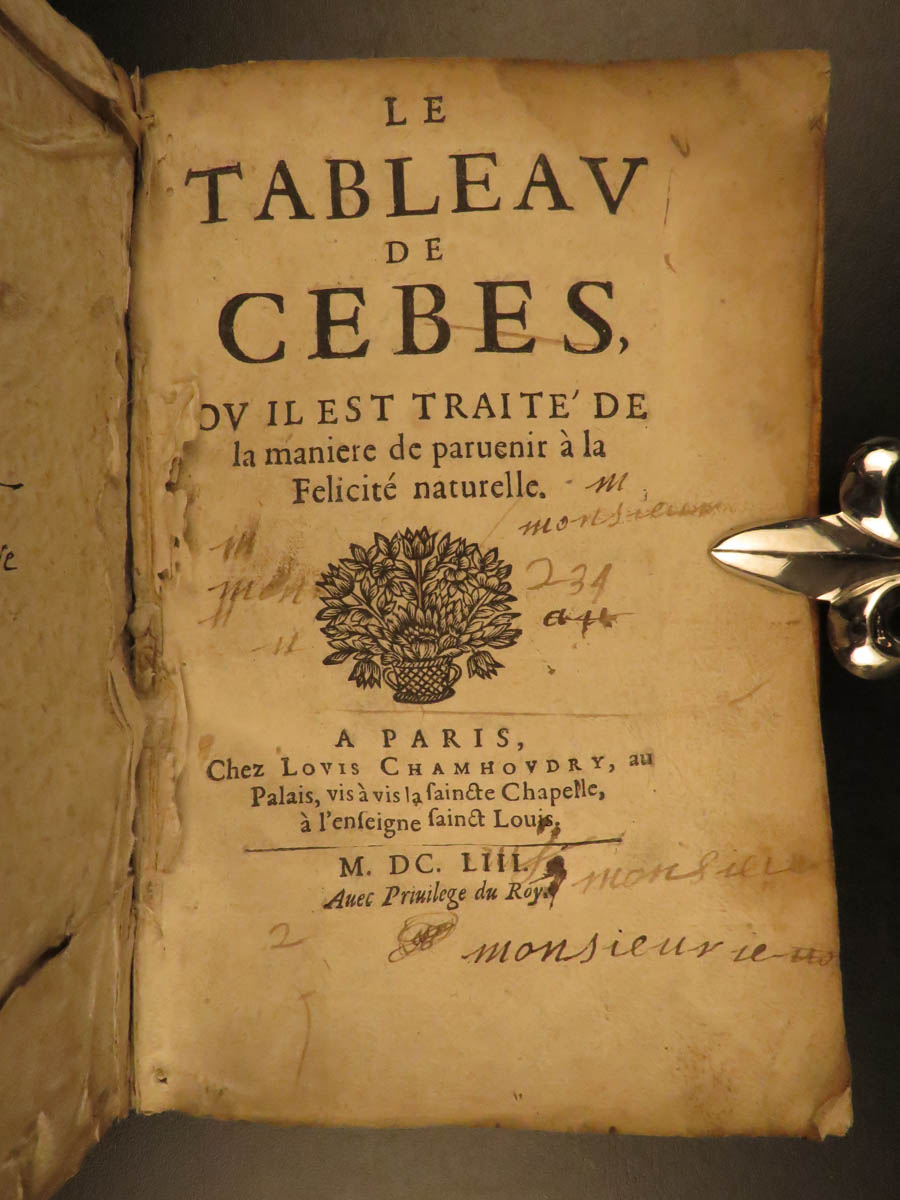 LE
TABLEAV
DE
CEBES,
OV IL EST TRAITE' DE
la maniere de paruenir à la
Felicité naturelle.
m
monsieur
m
mon
234
n
A PARIS,
Chez LOVIS CHAMHOVDRY, au
Palais, vis à vis la ſaincte Chapelle,
à l'enſeigne ſainct Louis.
M. DC. LIII.
monsieu
Auec Priuilege du Roy.
2
monsieur ie